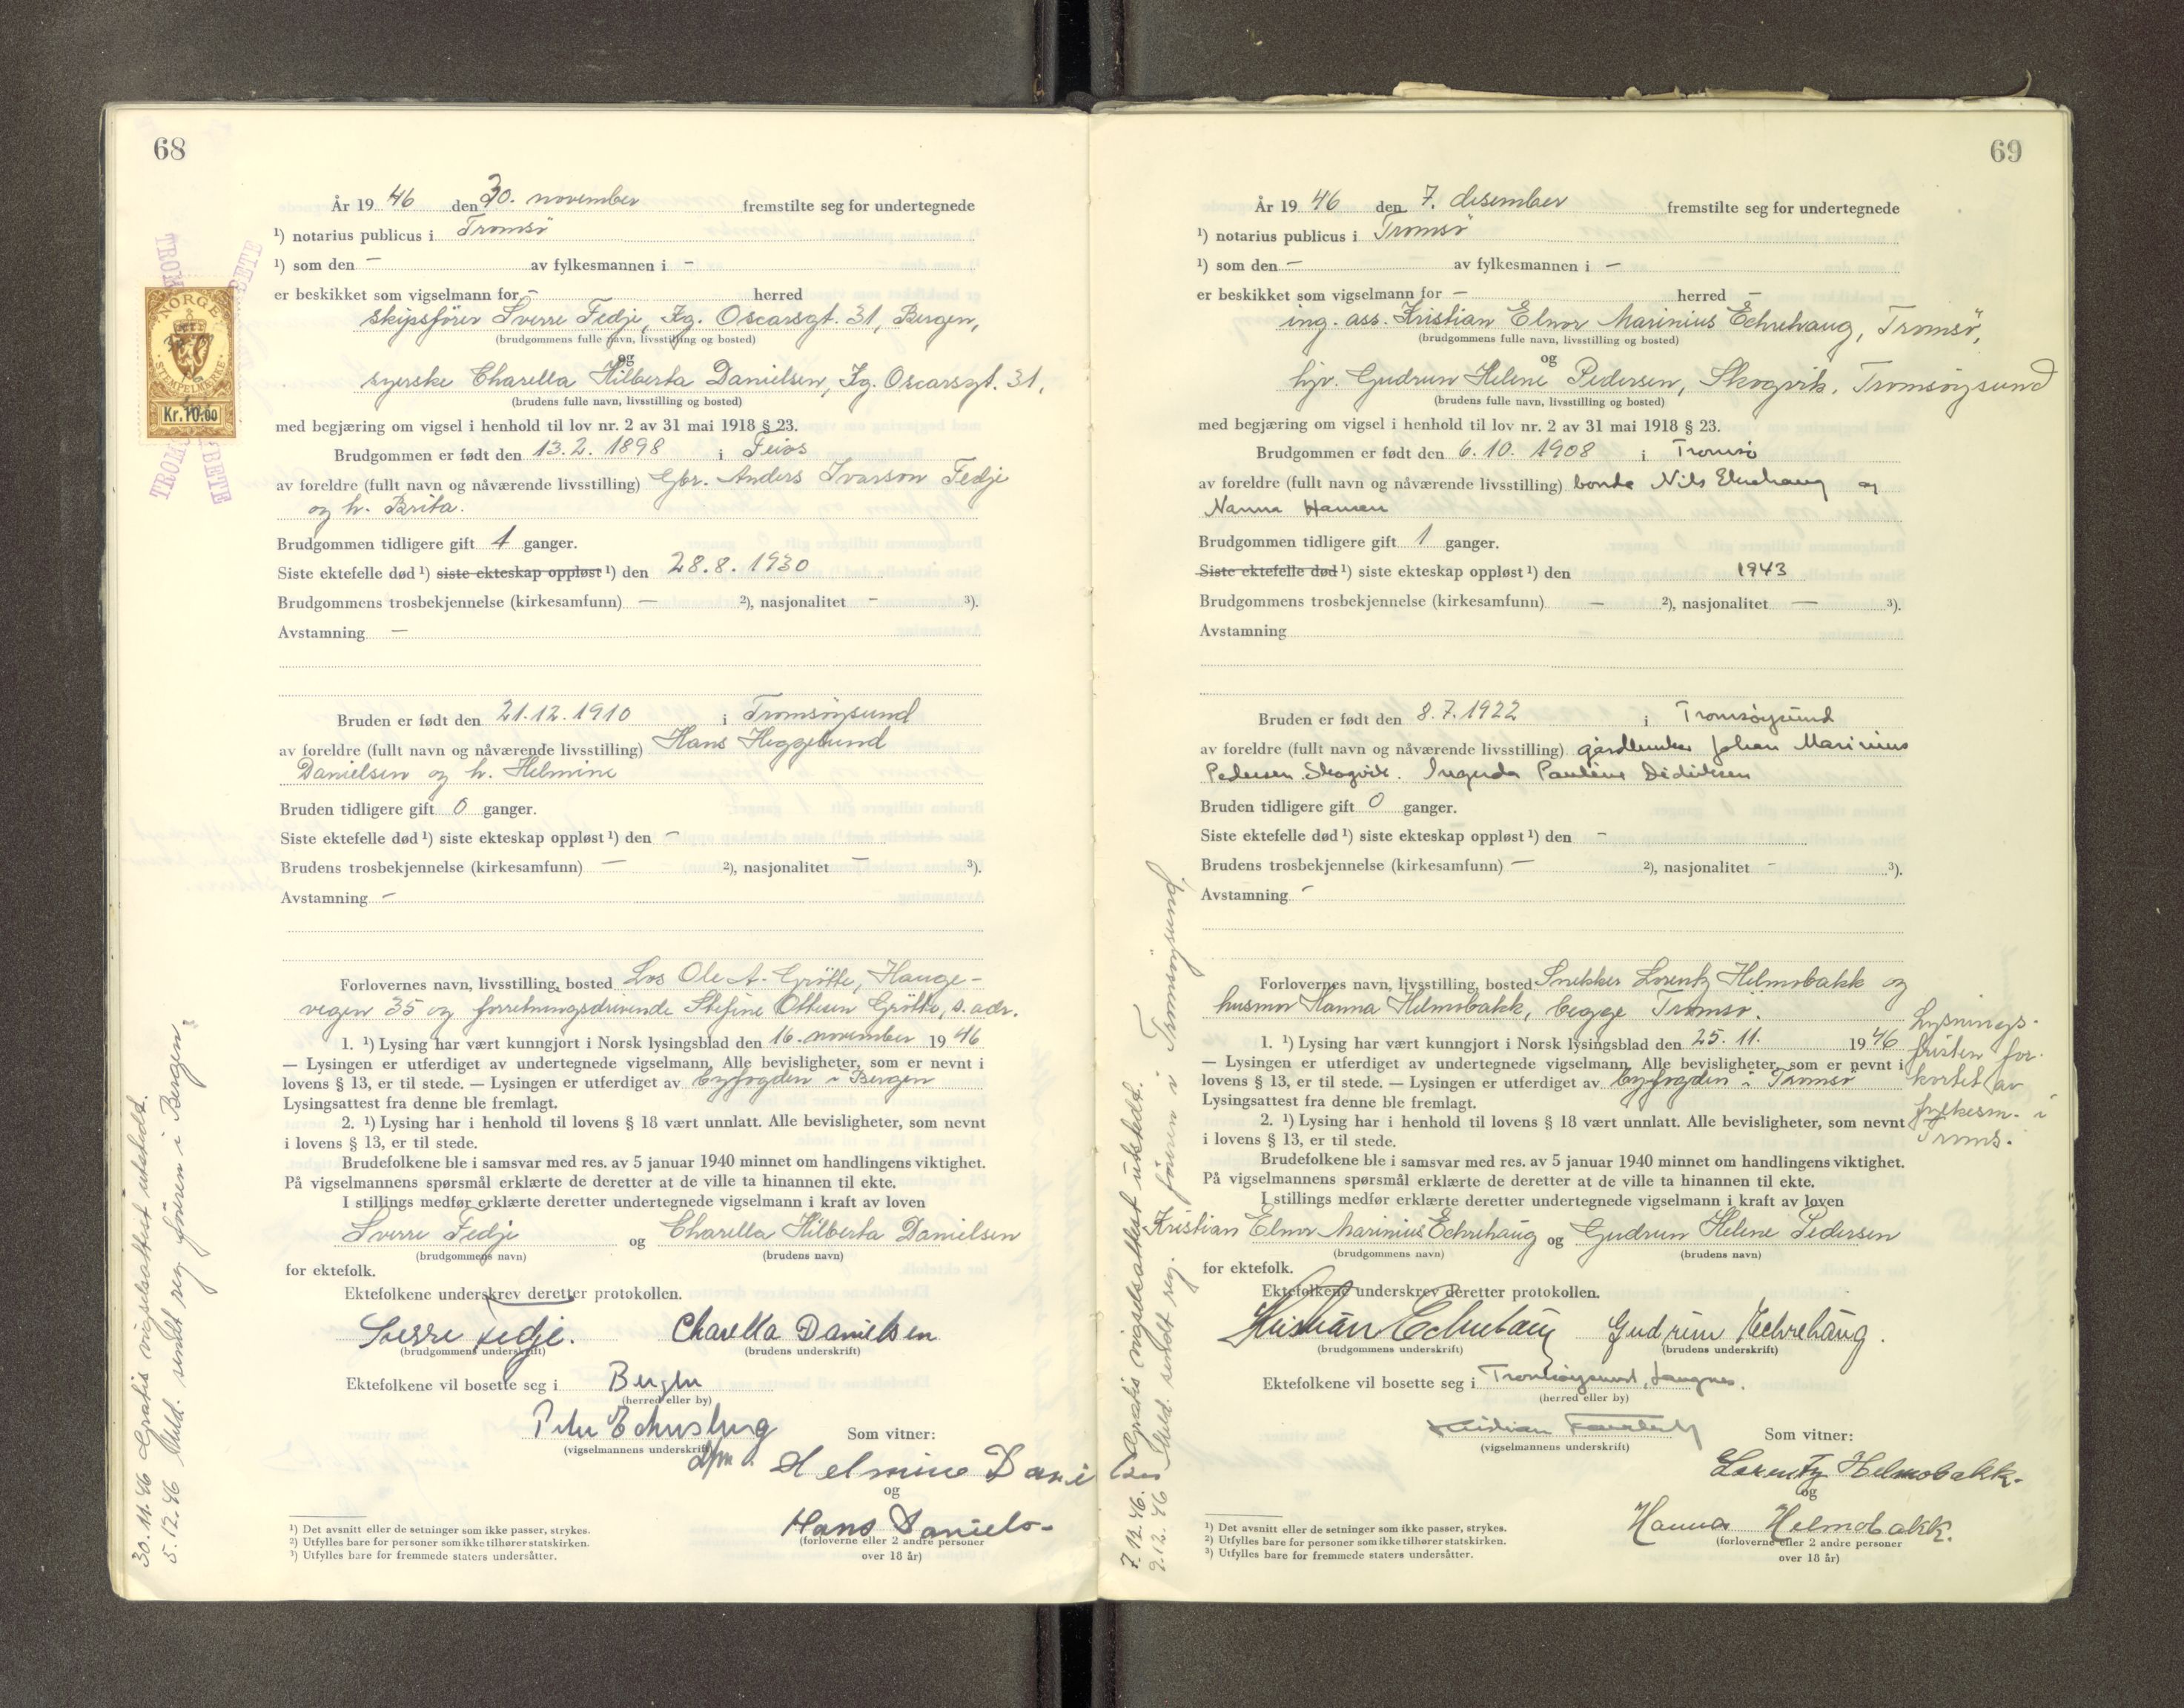 68
År 19 46 den 30. november fremstilte seg for undertegnede
¹) notarius publicus i Tromsö
¹) som den — av fylkesmannen i —
er beskikket som vigselmann for — herred
skipsfører Sverre Fedje, Kg. Oscarsgt. 31, Bergen,
(brudgommens fulle navn, livsstilling og bosted)
og
syerske Charella Hilberta Danielsen, Kg. Oscarsgt. 31.
(brudens fulle navn, livsstilling og bosted)
med begjæring om vigsel i henhold til lov nr. 2 av 31 mai 1918 § 23.
Brudgommen er født den 13.2.1898 i
av foreldre (fullt navn og nåværende livsstilling) Gbr. Anders Ivarson Fedje
og h. Brita.
Brudgommen tidligere gift 1 ganger.
Siste ektefelle død ¹) siste ekteskap oppløst ¹) den 28.8.1930
Brudgommens trosbekjennelse (kirkesamfunn) — ²), nasjonalitet — ³).
Avstamning —
Bruden er født den 21.12.1910 i Tromsöysund
av foreldre (fullt navn og nåværende livsstilling) Hans Heggelund
Danielsen og h. Helmine
Bruden tidligere gift 0 ganger.
Siste ektefelle død ¹) siste ekteskap oppløst ¹) den —
Brudens trosbekjennelse (kirkesamfunn) — ²), nasjonalitet — ³).
Avstamning —
Forlovernes navn, livsstilling, bosted Los Ole A. Grötte, Hauge-
vegen 35 og forretningsdrivende Stefine Ottesen Grötte, s. adr.
1. ¹) Lysing har vært kunngjort i Norsk lysingsblad den 16. november 19 46
— Lysingen er utferdiget av undertegnede vigselmann. Alle bevisligheter, som er nevnt i
lovens § 13, er til stede. — Lysingen er utferdiget av byfogden i Bergen
Lysingsattest fra denne ble fremlagt.
2. ¹) Lysing har i henhold til lovens § 18 vært unnlatt. Alle bevisligheter, som nevnt
i lovens § 13, er til stede.
Brudefolkene ble i samsvar med res. av 5 januar 1940 minnet om handlingens viktighet.
På vigselmannens spørsmål erklærte de deretter at de ville ta hinannen til ekte.
I stillings medfør erklærte deretter undertegnede vigselmann i kraft av loven
Sverre Fedje og Charella Hilberta Danielsen
(brudgommens navn) (brudens navn)
for ektefolk.
Ektefolkene underskrev deretter protokollen.
Sverre Fedje. Charella Danielsen
(brudgommens underskrift) (brudens underskrift)
Ektefolkene vil bosette seg i Bergen
(herred eller by)
(vigselmannens underskrift) Som vitner:
Helmine Danielsen
og
Hans Daniels-
(forloverne eller 2 andre personer
over 18 år)
¹) Det avsnitt eller de setninger som ikke passer, strykes.
²) Utfylles bare for personer som ikke tilhører statskirken.
³) Utfylles bare for fremmede staters undersåtter.
30.11.46 Gratis vigselsattest utstedt.
5.12.46 Meld. sendt reg.föreren i Bergen.
NORGE
STEMPELMERKE
Kr. 10.00
69
År 19 46 den 7. desember fremstilte seg for undertegnede
¹) notarius publicus i Tromsö
¹) som den — av fylkesmannen i —
er beskikket som vigselmann for — herred —
ing. ass. Kristian Elnor Marinius Echrehaug, Tromsö,
(brudgommens fulle navn, livsstilling og bosted)
og
hjv. Gudrun Helene Pedersen, Skogvik, Tromsöysund
(brudens fulle navn, livsstilling og bosted)
med begjæring om vigsel i henhold til lov nr. 2 av 31 mai 1918 § 23.
Brudgommen er født den 6.10.1908 i Tromsö
av foreldre (fullt navn og nåværende livsstilling) bonde Nils og
Nanna Hansen
Brudgommen tidligere gift 1 ganger.
Siste ektefelle død ¹) siste ekteskap oppløst ¹) den 1943
Brudgommens trosbekjennelse (kirkesamfunn) — ²), nasjonalitet — ³).
Avstamning
Bruden er født den 8.7.1922 i Tromsöysund
av foreldre (fullt navn og nåværende livsstilling) gårdbruker Johan Marinius
Pedersen Skogvik. Pauline Didriksen
Bruden tidligere gift 0 ganger.
Siste ektefelle død ¹) siste ekteskap oppløst ¹) den —
Brudens trosbekjennelse (kirkesamfunn) — ²), nasjonalitet — ³).
Avstamning —
Forlovernes navn, livsstilling, bosted Snekker Lorentz Helmobakk og
husmor Hanna Helmobakk, begge Tromsö.
1. ¹) Lysing har vært kunngjort i Norsk lysingsblad den 25. 11. 19 46
— Lysingen er utferdiget av undertegnede vigselmann. Alle bevisligheter, som er nevnt i
lovens § 13, er til stede. — Lysingen er utferdiget av byfogden i Tromsö
Lysingsattest fra denne ble fremlagt.
2. ¹) Lysing har i henhold til lovens § 18 vært unnlatt. Alle bevisligheter, som nevnt
i lovens § 13, er til stede.
Lysnings-
fristen for-
kortet av
fylkesm. i
Troms.
Brudefolkene ble i samsvar med res. av 5 januar 1940 minnet om handlingens viktighet.
På vigselmannens spørsmål erklærte de deretter at de ville ta hinannen til ekte.
I stillings medfør erklærte deretter undertegnede vigselmann i kraft av loven
Kristian Elnor Marinius Echrehaug og Gudrun Helene Pedersen
(brudgommens navn) (brudens navn)
for ektefolk.
Ektefolkene underskrev deretter protokollen.
Kristian Echrehaug Gudrun Echrehaug.
(brudgommens underskrift) (brudens underskrift)
Ektefolkene vil bosette seg i Tromsöysund, Langnes.
(herred eller by)
(vigselmannens underskrift) Som vitner:
Lorentz Helmobakk.
og
Hanna Helmobakk.
(forloverne eller 2 andre personer
over 18 år)
¹) Det avsnitt eller de setninger som ikke passer, strykes.
²) Utfylles bare for personer som ikke tilhører statskirken.
³) Utfylles bare for fremmede staters undersåtter.
7.12.46. Gratis vigselsattest utstedt.
9.12.46 Meld. sendt reg. föreren i Tromsöysund